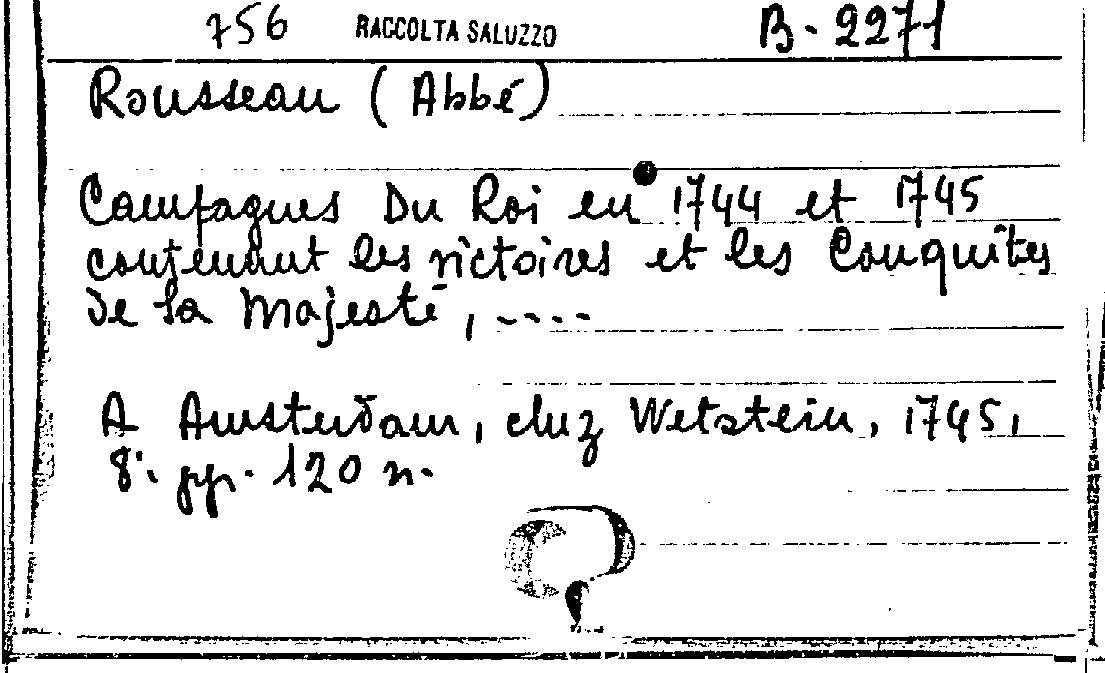 756 RACCOLTA SALUZZO B. 2271
Rousseau (Abbé)
Campagnes Du Roi en 1744 et 1745
contenant les victoires et les Conquêtes
de sa Majesté, ....
A Amsterdam, chez Wetstein, 1745,
8°. pp. 120 n.